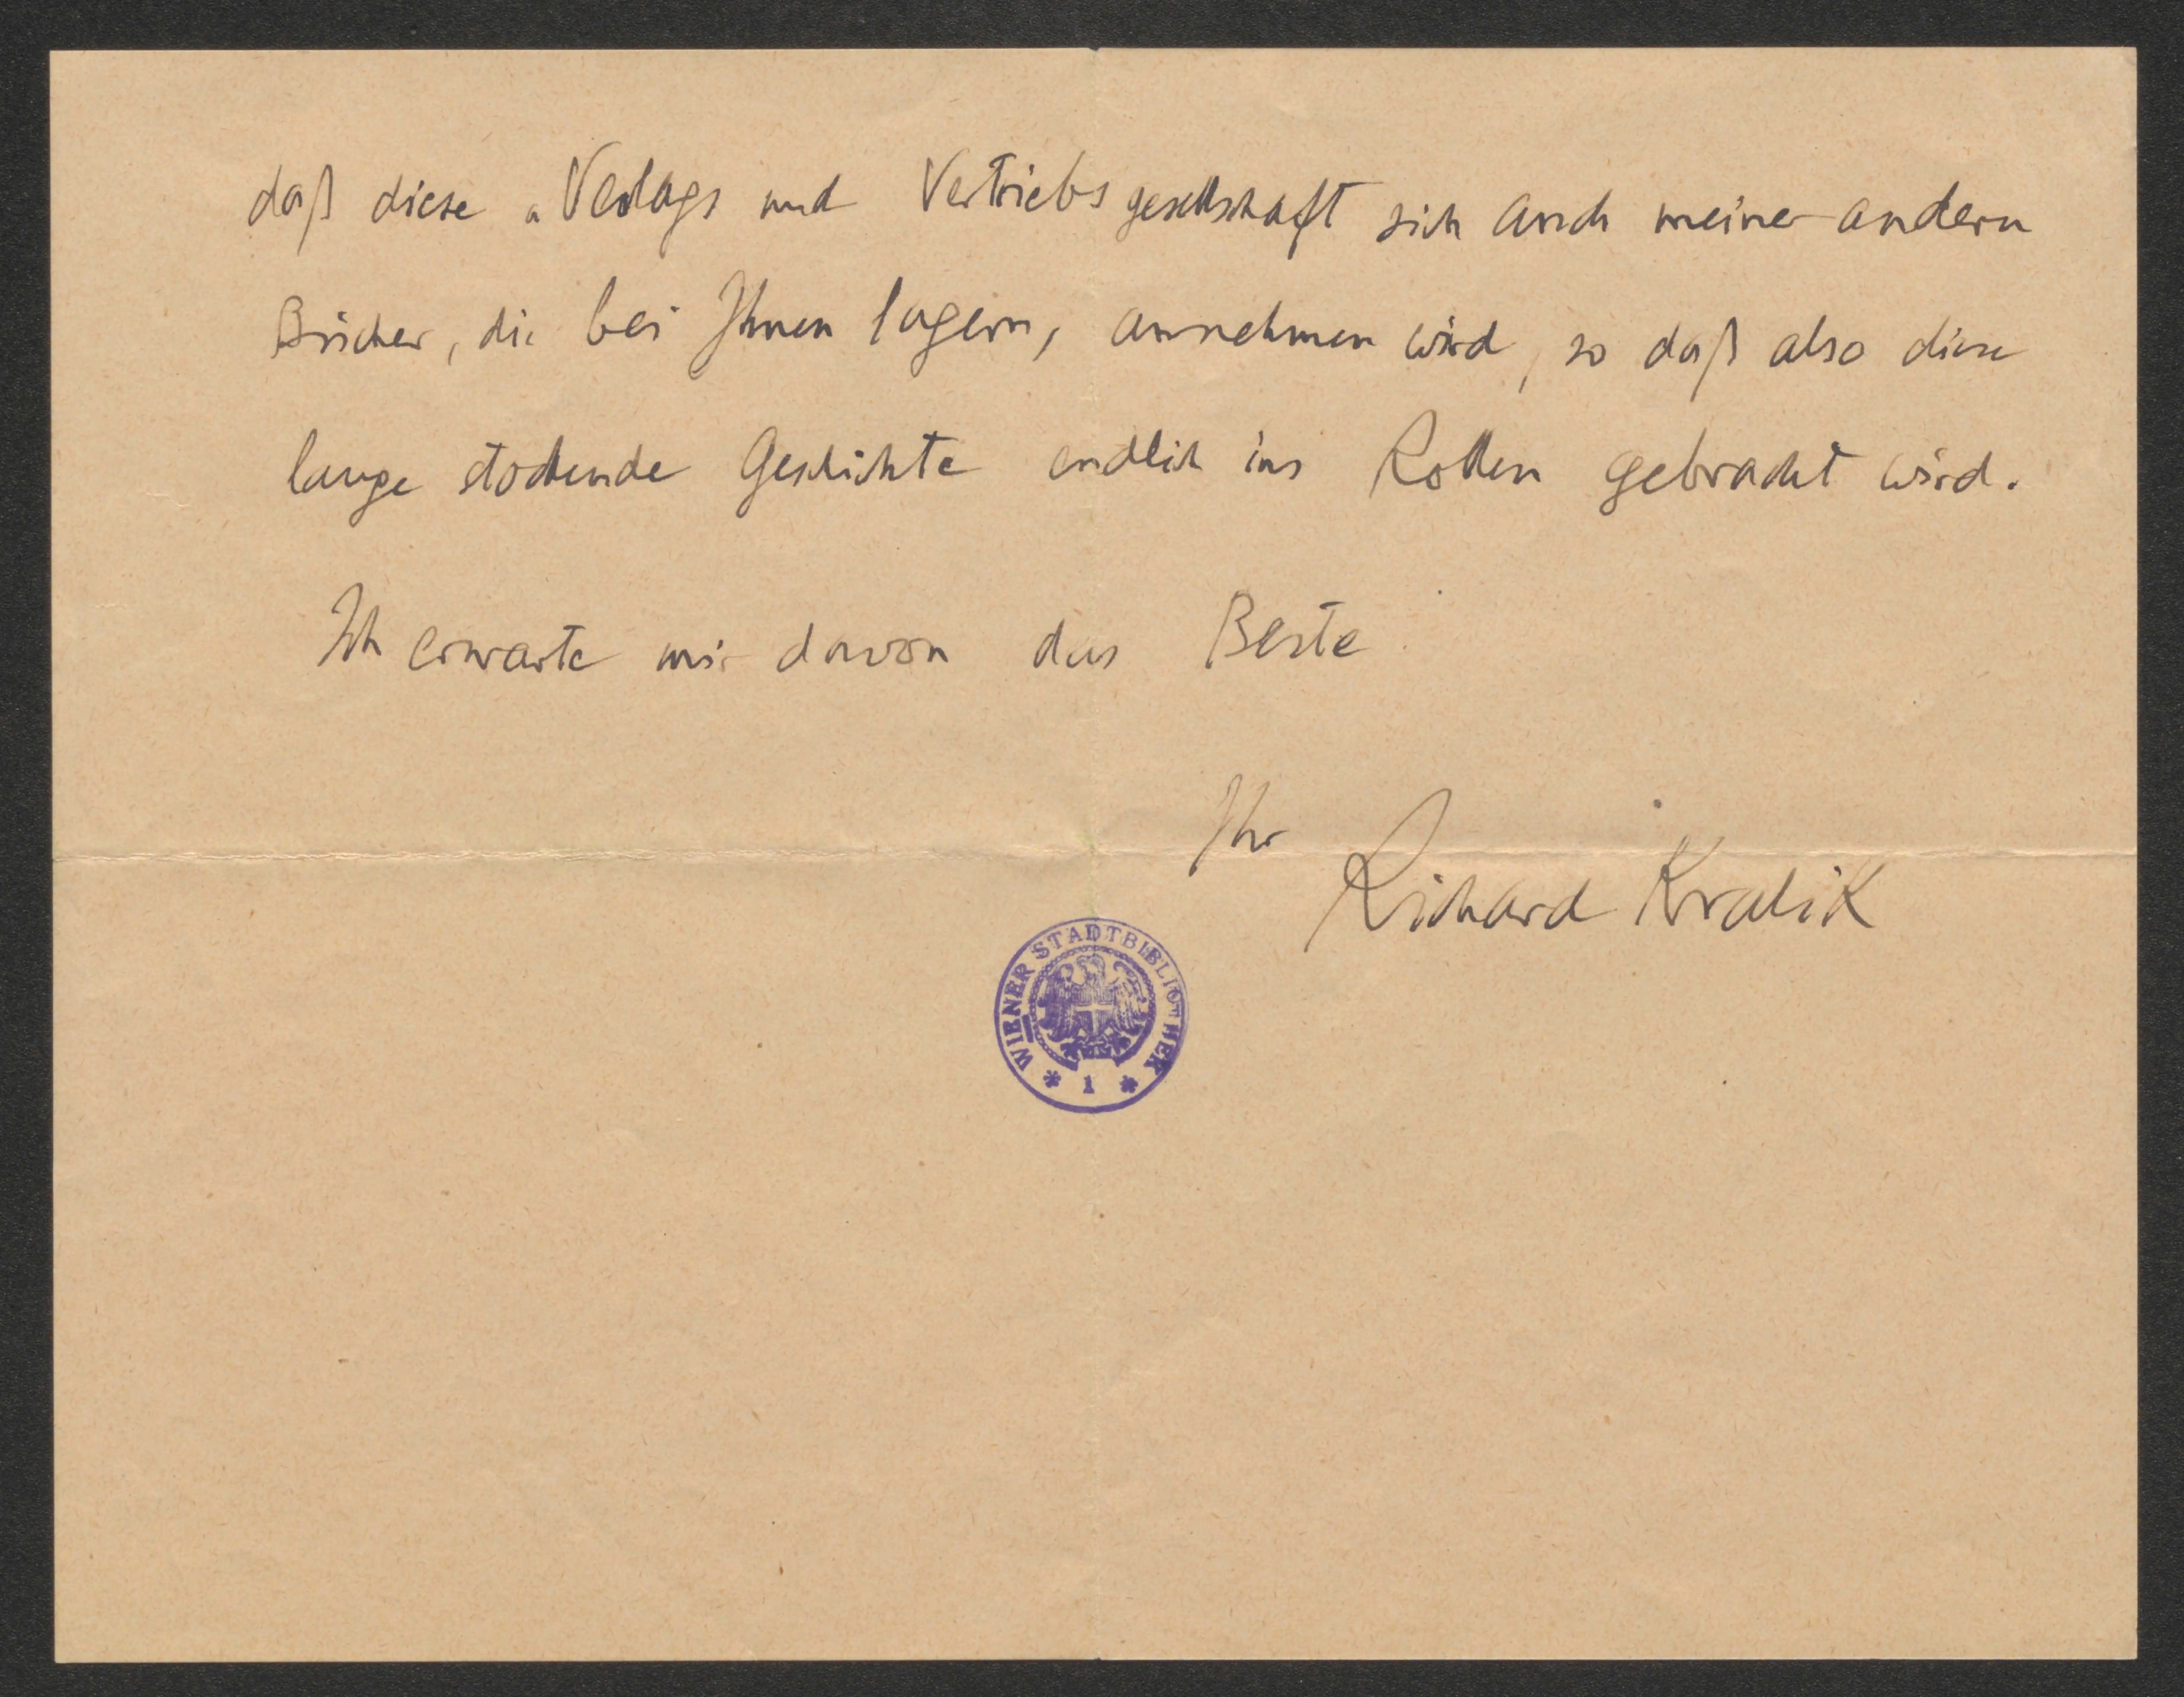 daß diese „Verlags und Vertriebsgesellschaft sich auch meiner andern
Bücher, die bei Ihnen lagern, annehmen wird, so daß also diese
lange stockende Geschichte endlich ins Rollen gebracht wird.
Ich erwarte mir davon das Beste.
Ihr
Richard Kralik
WIENER STADTBIBLIOTHEK
* 1 *